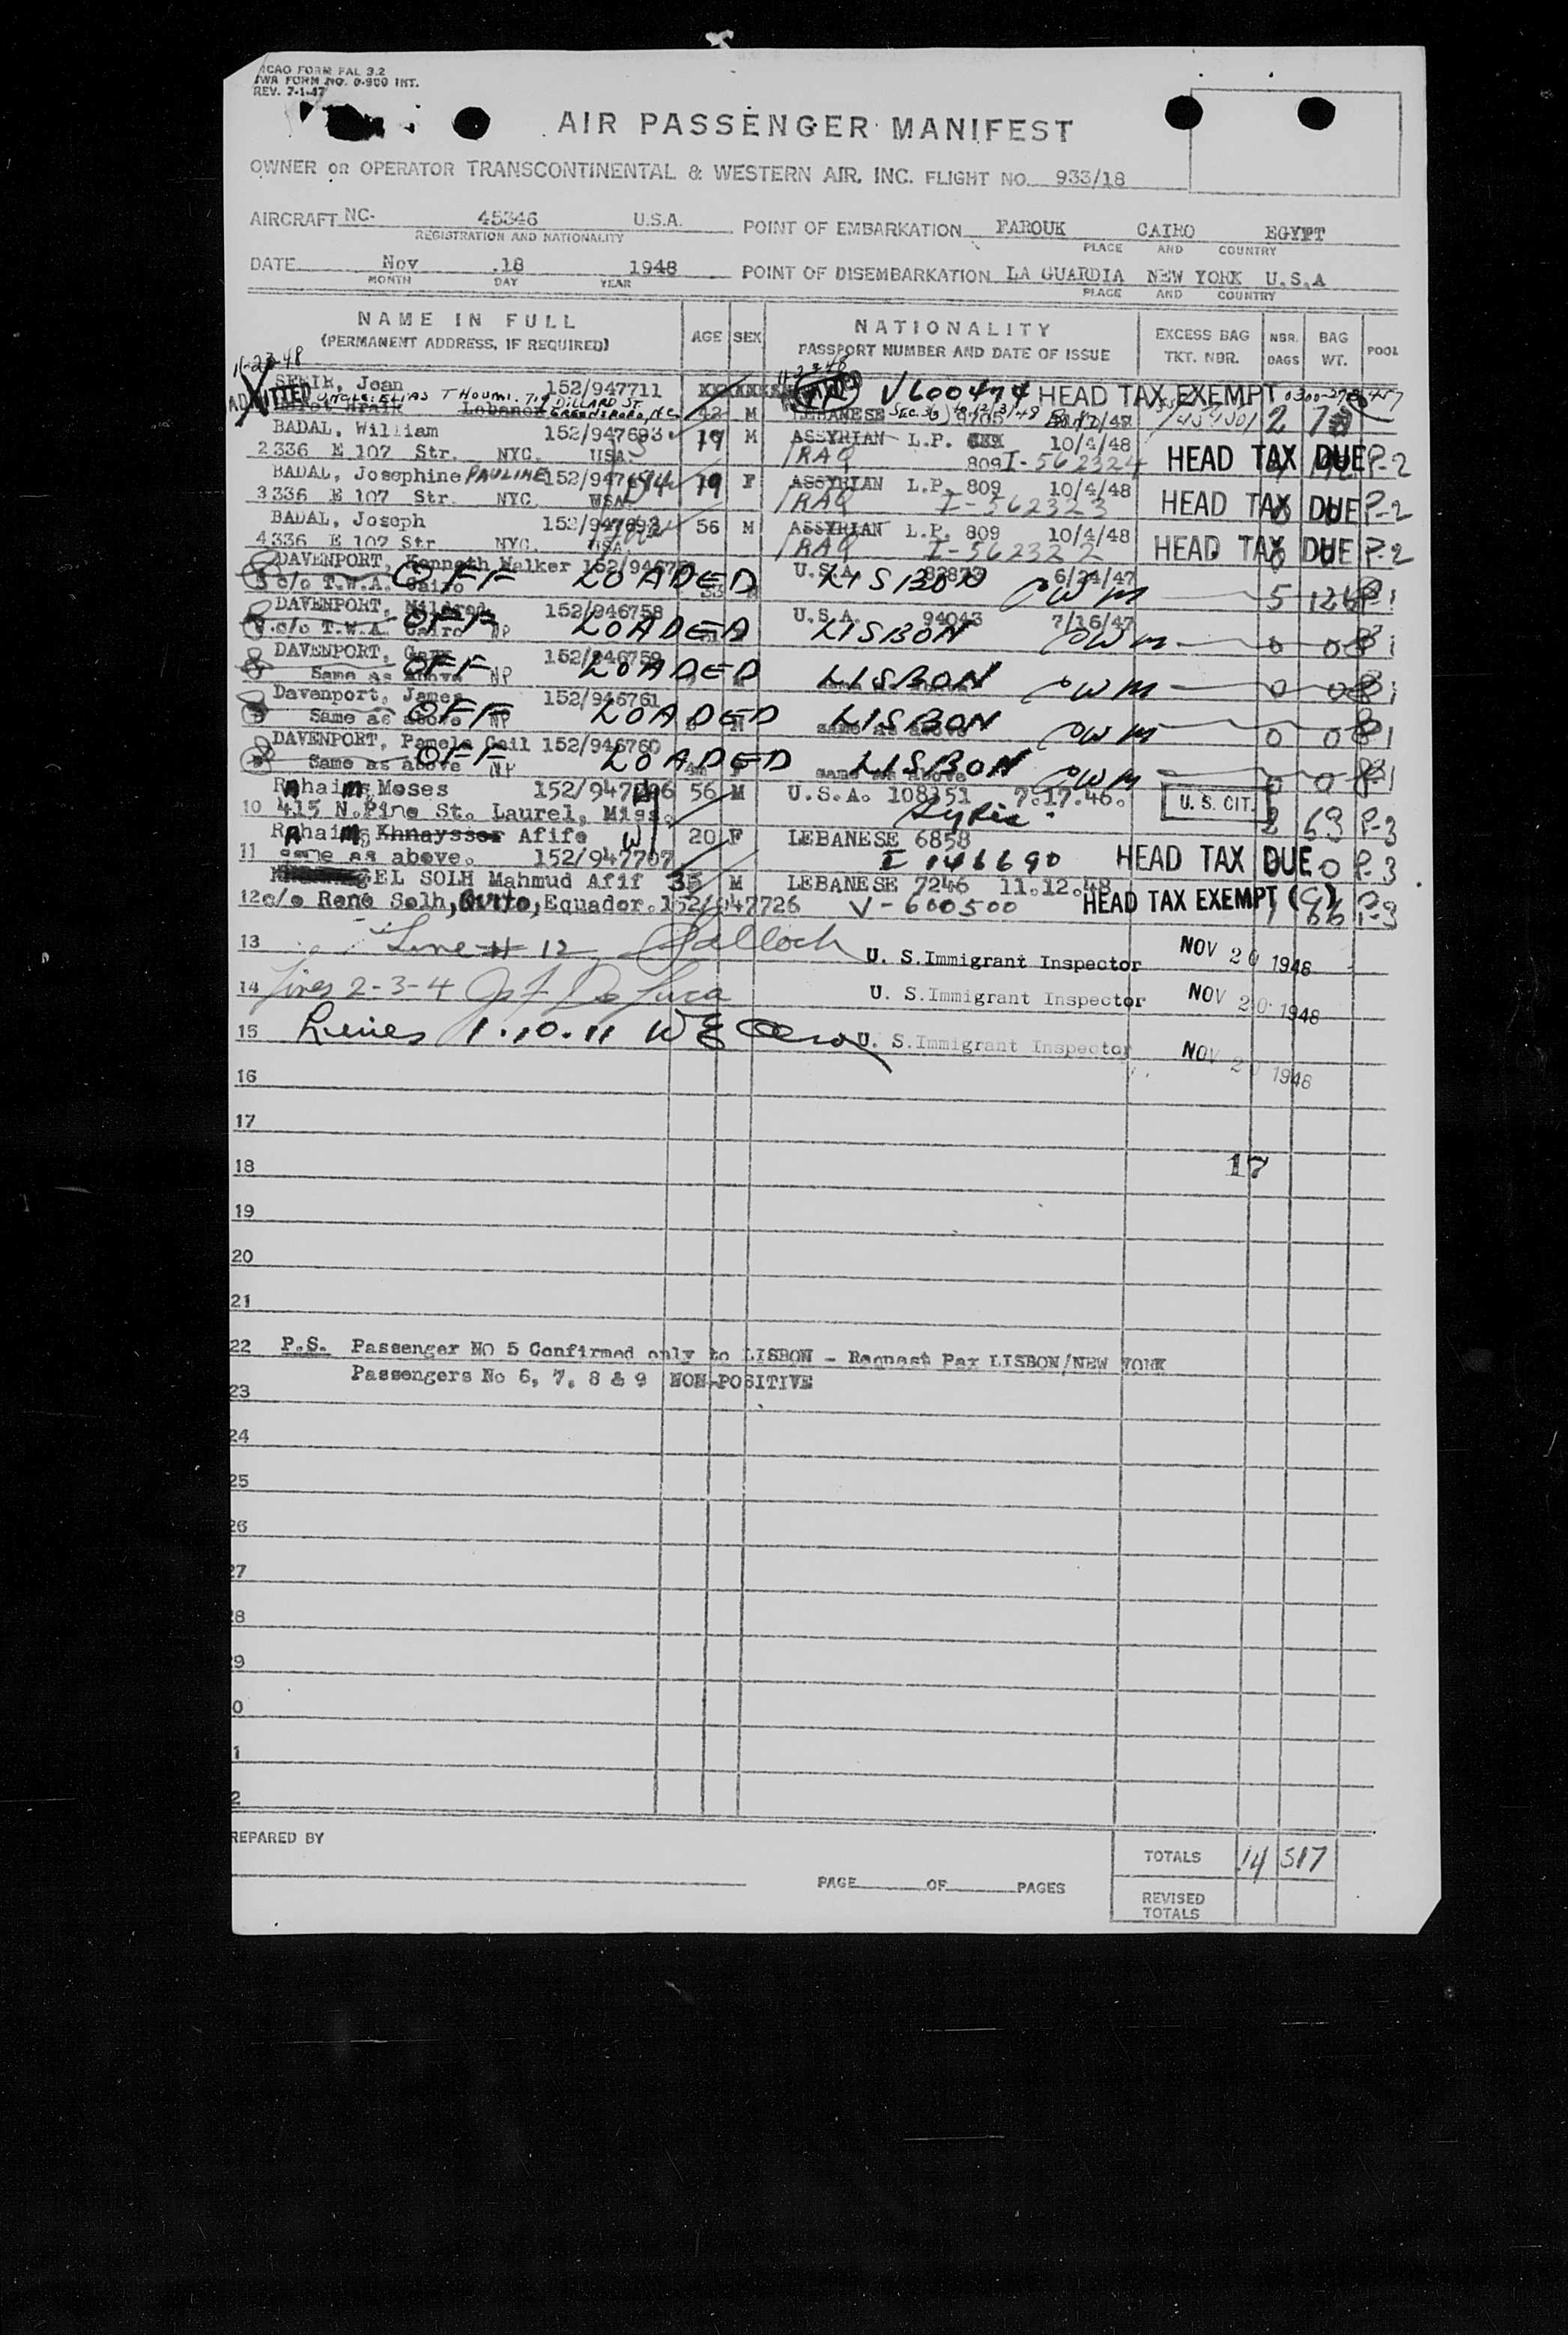 ICAO FORM FAL 3.2
TWA FORM NO. 0-900 INT.
REV. 7-1-47
AIR PASSENGER MANIFEST
OWNER OR OPERATOR TRANSCONTINENTAL & WESTERN AIR, INC. FLIGHT NO. 933/18
AIRCRAFT NC- 45346 U.S.A. POINT OF EMBARKATION FAROUK CAIRO EGYPT
REGISTRATION AND NATIONALITY PLACE AND COUNTRY
DATE Nov .18 1948 POINT OF DISEMBARKATION LA GUARDIA NEW YORK U.S.A
MONTH DAY YEAR PLACE AND COUNTRY
NAME IN FULL AGE SEX NATIONALITY EXCESS BAG NBR. BAG POOL
(PERMANENT ADDRESS, IF REQUIRED) PASSPORT NUMBER AND DATE OF ISSUE TKT. NBR. BAGS WT.
11-23-48
Jean 152/947711 V600474 HEAD TAX EXEMPT
ADMITTED UNCLE: ELIAS T HOUMI. DILLARD ST
Lebanon GREENSBORO, N.C. 42 M LEBANESE 2
BADAL, William 152/947693 19 M ASSYRIAN L.P. 10/4/48
2 336 E 107 Str. NYC. USA IRAQ 809 I-562324 HEAD TAX DUE P-2
BADAL, Josephine PAULINE 19 F ASSYRIAN L.P. 809 10/4/48
3 336 E 107 Str. NYC. USA IRAQ I-562323 HEAD TAX DUE P-2
BADAL, Joseph 56 M ASSYRIAN L.P. 809 10/4/48
4 336 E 107 Str NYC. USA. IRAQ I-562322 HEAD TAX DUE P-2
DAVENPORT, Kenneth Walker U.S.A. 6/24/47
5 c/o T.W.A. Cairo OFF LOADED LISBON OWM 5
DAVENPORT, Mildred 152/946758 U.S.A. 94043 7/16/47
c/o T.W.A. Cairo NP OFF LOADED LISBON OWM 0 0
DAVENPORT, 152/946759
Same as above NP OFF LOADED LISBON OWM 0 0
Davenport, James 152/946761
Same as above NP OFF LOADED LISBON same as above OWM 0 0
DAVENPORT, Pamela Gail 152/946760
Same as above NP OFF LOADED LISBON same as above OWM 0 0
Rahaim Moses 56 M U.S.A. 108151 7.17.46.
10 415 N.Pine St. Laurel, Miss. Syria U.S. CIT. 2 69 P-3
Rahaim Khnaysser Afife 20 F LEBANESE 6858
11 same as above. 152/947707 I 146690 HEAD TAX DUE 0 P-3
EL SOLH Mahmud Afif 35 M LEBANESE 7246 11.12.48
12 c/o René Solh, Quito, Equador. 152/947726 V-600500 HEAD TAX EXEMPT 66 P-3
13 Line # 12 U. S. Immigrant Inspector NOV 20 1948
14 Lines 2-3-4 U. S. Immigrant Inspector NOV 20 1948
15 Lines 1.10.11 U. S. Immigrant Inspector NOV 20 1948
16
17
18 17
19
20
21
22 P.S. Passenger NO 5 Confirmed only to LISBON - Request Par LISBON/NEW YORK
Passengers No 6, 7, 8 & 9 NON-POSITIVE
23
24
25
26
27
28
29
0
1
2
REPARED BY
TOTALS 14 517
PAGE OF PAGES
REVISED
TOTALS